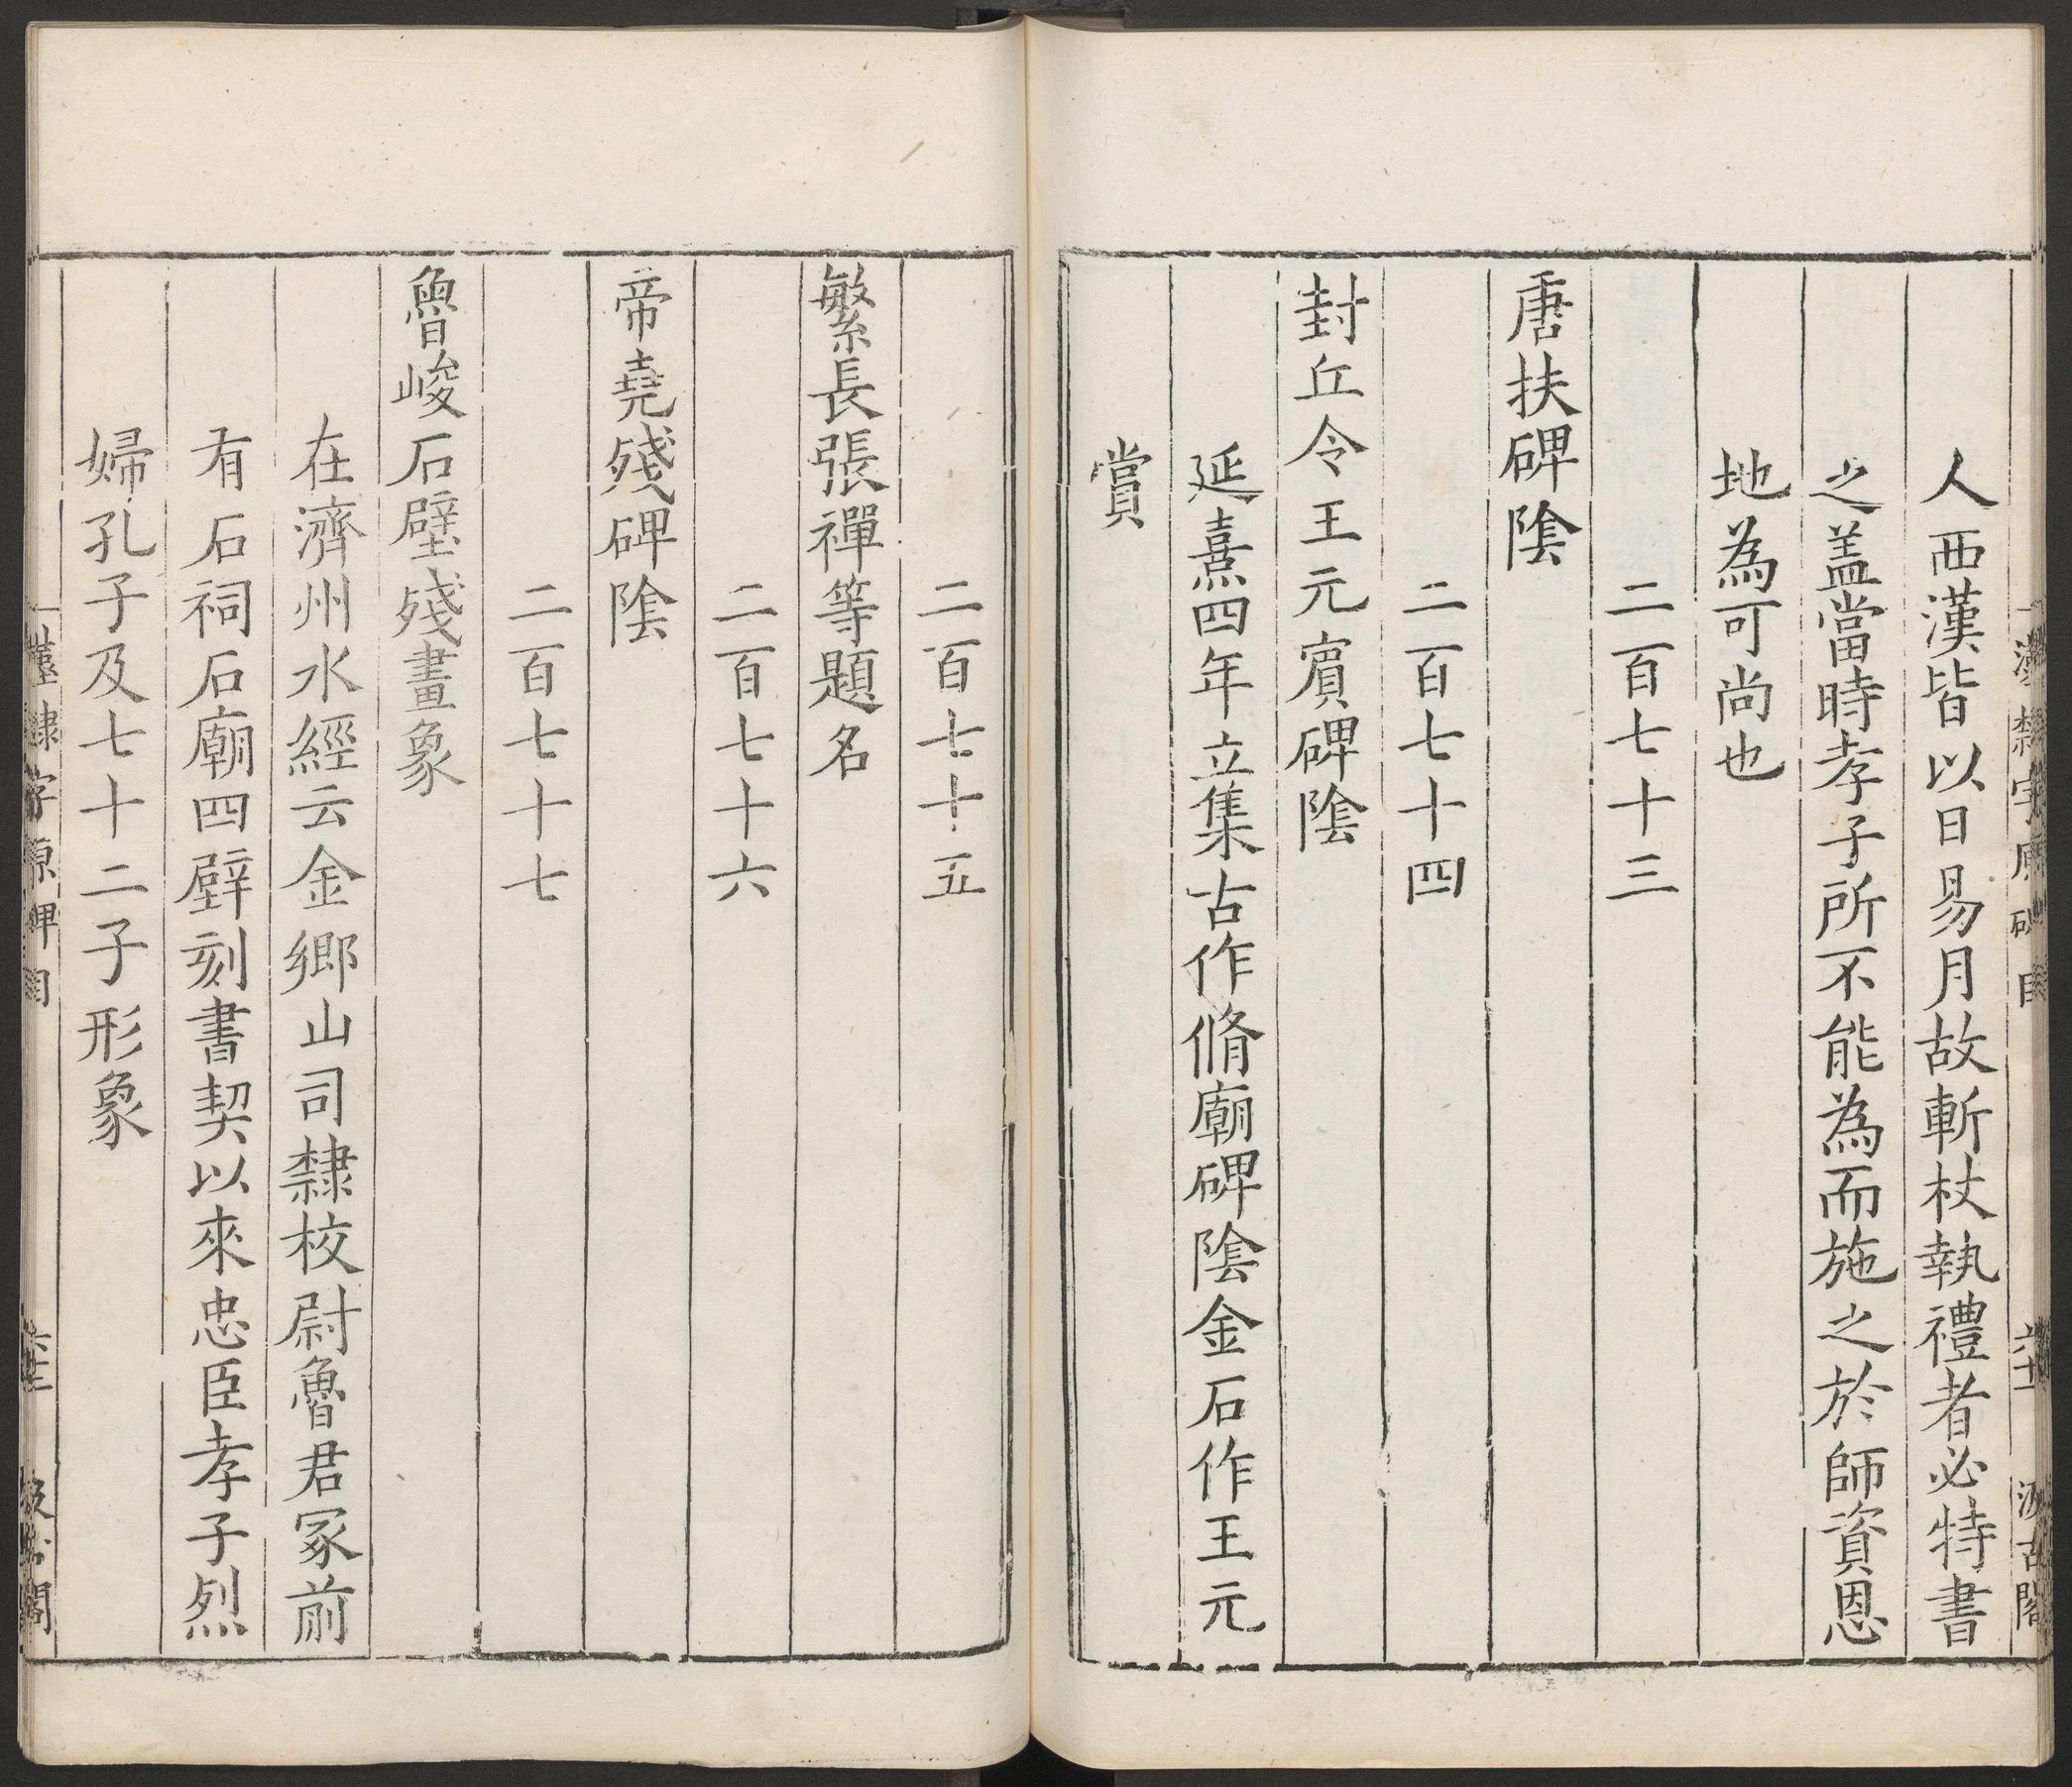 人西漢皆以日易月故斬杖執禮者必特書
之盖當時孝子所不能為而施之於師資恩
地為可尚也
二百七十三
唐扶碑陰
二百七十四
封丘令王元賔碑陰
延熹四年立集古作脩廟碑陰金石作王元
賞
二百七十五
繁長張禪等題名
二百七十六
帝堯殘碑陰
二百七十七
魯峻石壁殘畫象
在濟州水經云金鄉山司隸校尉魯君冢前
有石祠石廟四壁刻書契以來忠臣孝子烈
婦孔子及七十二子形象
漢隸字原碑目
六十二
汲古閣